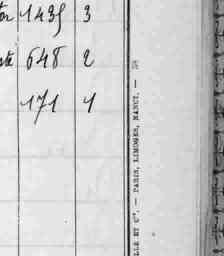 1435 3
648 2
171 1
LLE ET Cie. — PARIS, LIMOGES, NANCY. —